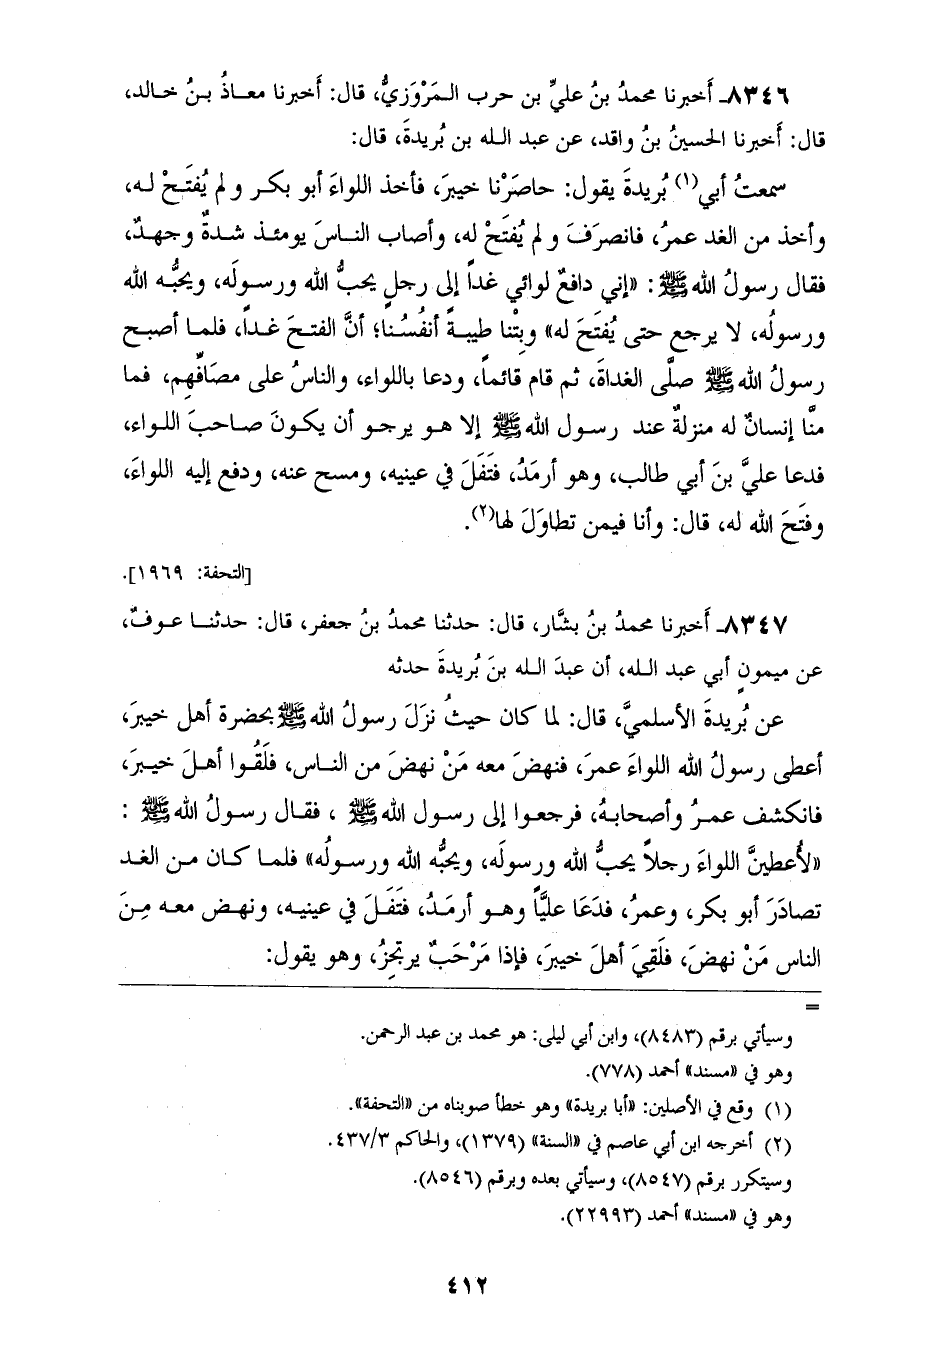 ٨٣٤٦ـ أَخبرنا محمدُ بنُ عليِّ بن حرب المَرْوَزيُّ، قال: أَخبرنا معاذُ بنُ خالد،
قال: أَخبرنا الحسينُ بنُ واقد، عن عبد الله بن بُريدةَ، قال:
سمعتُ أبي(١) بُريدةَ يقول: حاصَرْنا خيبرَ، فأخذ اللواءَ أبو بكر ولم يُفتَحْ له،
وأخذ من الغد عمرُ، فانصرَفَ ولم يُفتَحْ له، وأصاب الناسَ يومئذ شدةٌ وجهدٌ،
فقال رسولُ الله ﷺ: «إني دافعٌ لوائي غداً إلى رجلٍ يحبُّ الله ورسولَه، ويحبُّه الله
ورسولُه، لا يرجع حتى يُفتَحَ له» وبِتْنا طيبةً أنفُسُنا؛ أنَّ الفتحَ غداً، فلما أصبح
رسولُ الله ﷺ صلَّى الغداةَ، ثم قام قائماً، ودعا باللواء، والناسُ على مصَافِّهِم، فما
منَّا إنسانٌ له منزلةٌ عند رسول الله ﷺ إلا هو يرجو أن يكونَ صاحبَ اللواء،
فدعا عليَّ بنَ أبي طالب، وهو أرمَدُ، فتَفَلَ في عينيه، ومسح عنه، ودفع إليه اللواءَ،
وفتَحَ الله له، قال: وأنا فيمن تطاوَلَ لها(٢).
[التحفة: ١٩٦٩].
٨٣٤٧ـ أَخبرنا محمدُ بنُ بشَّار، قال: حدثنا محمدُ بنُ جعفر، قال: حدثنا عوفٌ،
عن ميمونٍ أبي عبد الله، أن عبدَ الله بنَ بُريدةَ حدثه
عن بُريدةَ الأسلميِّ، قال: لما كان حيثُ نزَلَ رسولُ الله ﷺ بحضرة أهل خيبرَ،
أعطى رسولُ الله اللواءَ عمرَ، فنهضَ معه مَنْ نهضَ من الناس، فلَقُوا أهلَ خيبرَ،
فانكشف عمرُ وأصحابهُ، فرجعوا إلى رسول الله ﷺ ، فقال رسولُ الله ﷺ :
«لأُعطينَّ اللواءَ رجلاً يحبُّ الله ورسولَه، ويحبُّه الله ورسولُه» فلما كان من الغد
تصادَرَ أبو بكر، وعمرُ، فدَعَا عليَّاً وهو أرمَدُ، فتَفَلَ في عينيه، ونهض معه مِنَ
الناس مَنْ نهضَ، فلَقِيَ أهلَ خيبرَ، فإذا مَرْحَبٌ يرتجِزُ، وهو يقول:
=
وسيأتي برقم (٨٤٨٣)، وابن أبي ليلى: هو محمد بن عبد الرحمن.
وهو في «مسند» أحمد (٧٧٨).
(١) وقع في الأصلين: «أبا بريدة» وهو خطأ صوبناه من «التحفة».
(٢) أخرجه ابن أبي عاصم في «السنة» (١٣٧٩)، والحاكم ٤٣٧/٣.
وسيتكرر برقم (٨٥٤٧)، وسيأتي بعده وبرقم (٨٥٤٦).
وهو في «مسند» أحمد (٢٢٩٩٣).
٤١٢